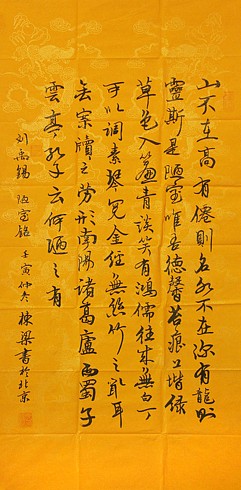 山不在高有僊則名水不在深有龍則
靈斯是陋室唯吾德馨苔痕上階綠
草色入簾青談笑有鴻儒往來無白丁
可以調素琴閱金經無絲竹之亂耳
無案牘之勞形南陽諸葛廬西蜀子
雲亭孔子云何陋之有
刘禹锡 陋室銘 壬寅仲冬 棟梁書於北京